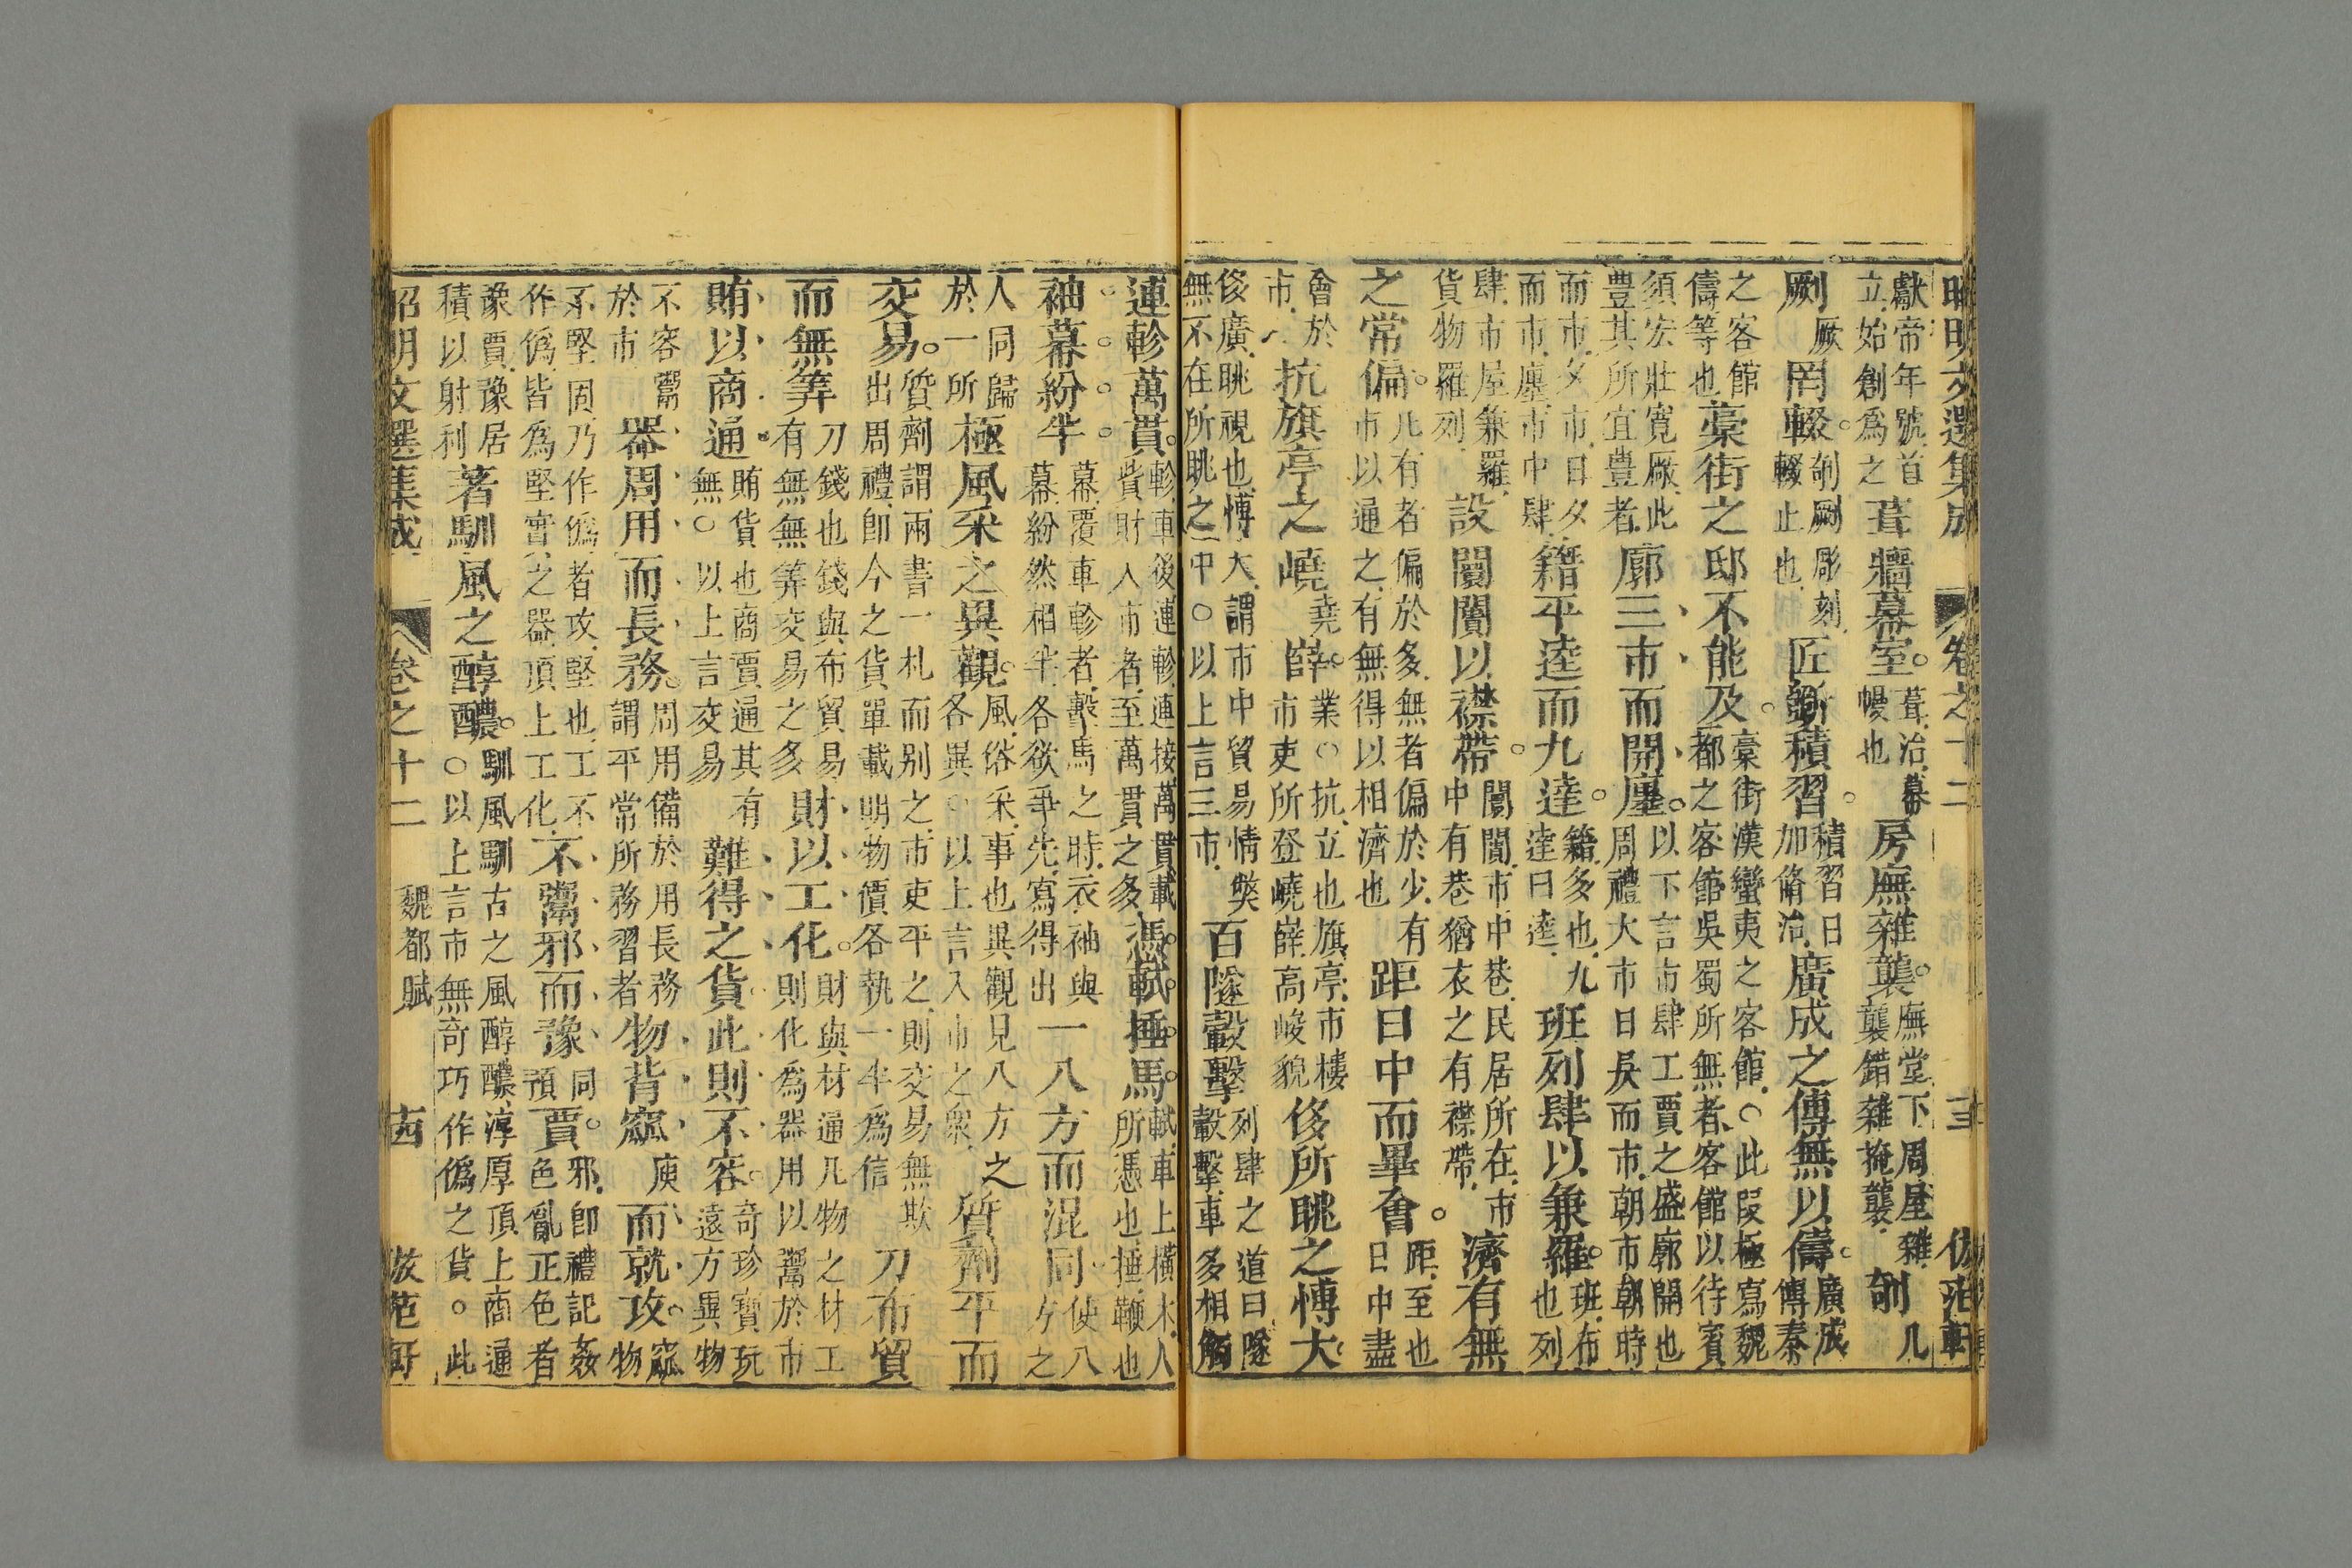 昭明文選集成 卷之十二 三 倣范軒
獻帝年號首立始創爲之葺牆幕室葺治幕幔也房廡雜襲廡堂下周屋雜襲錯雜掩襲剞几
劂厥罔輟剞劂彫刻輟止也匠斲積習積習日加脩治廣成之傳無以儔廣成傳秦
之客館儔等也藁街之邸不能及藁街漢蠻夷之客館○此段極寫魏都之客館吳蜀所無者客館以待賓
須宏壯寬厰此豊其所宜豊者廓三市而開廛以下言市肆工賈之盛廓開也周禮大市日昃而市朝市朝時
而市夕市日夕而市廛市中肆籍平逵而九達籍多也九達曰逵班列肆以兼羅班布也列
肆市屋兼羅貨物羅列設闤闠以襟帶闤闠市中巷民居所在市中有巷猶衣之有襟帶濟有無
之常偏凡有者偏於多無者偏於少有市以通之有無得以相濟也距日中而畢會距至也日中盡
會於市抗旗亭之嶢堯薛業○抗立也旗亭市樓市吏所登嶢薛高峻貌侈所眺之博大
侈廣眺視也博大謂市中貿易情獘無不在所眺之中○以上言三市百隧轂擊列肆之道曰隧轂擊車多相觸
連軫萬貫軫車後連軫連接萬貫載貲財入市者至萬貫之多憑軾捶馬軾車上橫木人所憑也捶鞭也
袖幕紛半幕覆車軫者擊馬之時衣袖與幕紛然相半各欲爭先寫得出一八方而混同使八方之
人同歸於一所極風采之異觀風俗采事也異觀見八方之各異○以上言入市之衆質劑平而
交易質劑謂兩書一札而别之市吏平之則交易無欺出周禮即今之貨單載明物價各執一半爲信刀布貿
而無筭刀錢也錢與布貿易有無無筭交易之多財以工化財與材通凡物之材工則化爲器用以鬻於市
賄以商通賄貨也商賈通其有無○以上言交易難得之貨此則不容奇珍寶玩遠方異物
不容鬻於市器周用而長務周用備於用長務謂平常所務習者物背窳庾而就攻窳物
不堅固乃作僞者攻堅也工不作僞皆爲堅實之器頂上工化不鬻邪而豫同預賈邪即禮記姦色亂正色者
豫賈豫居積以射利著馴風之醇醲馴風馴古之風醇醲淳厚頂上商通○以上言市無奇巧作僞之貨。此
昭明文選集成 卷之十二 魏都賦 十四 倣范軒